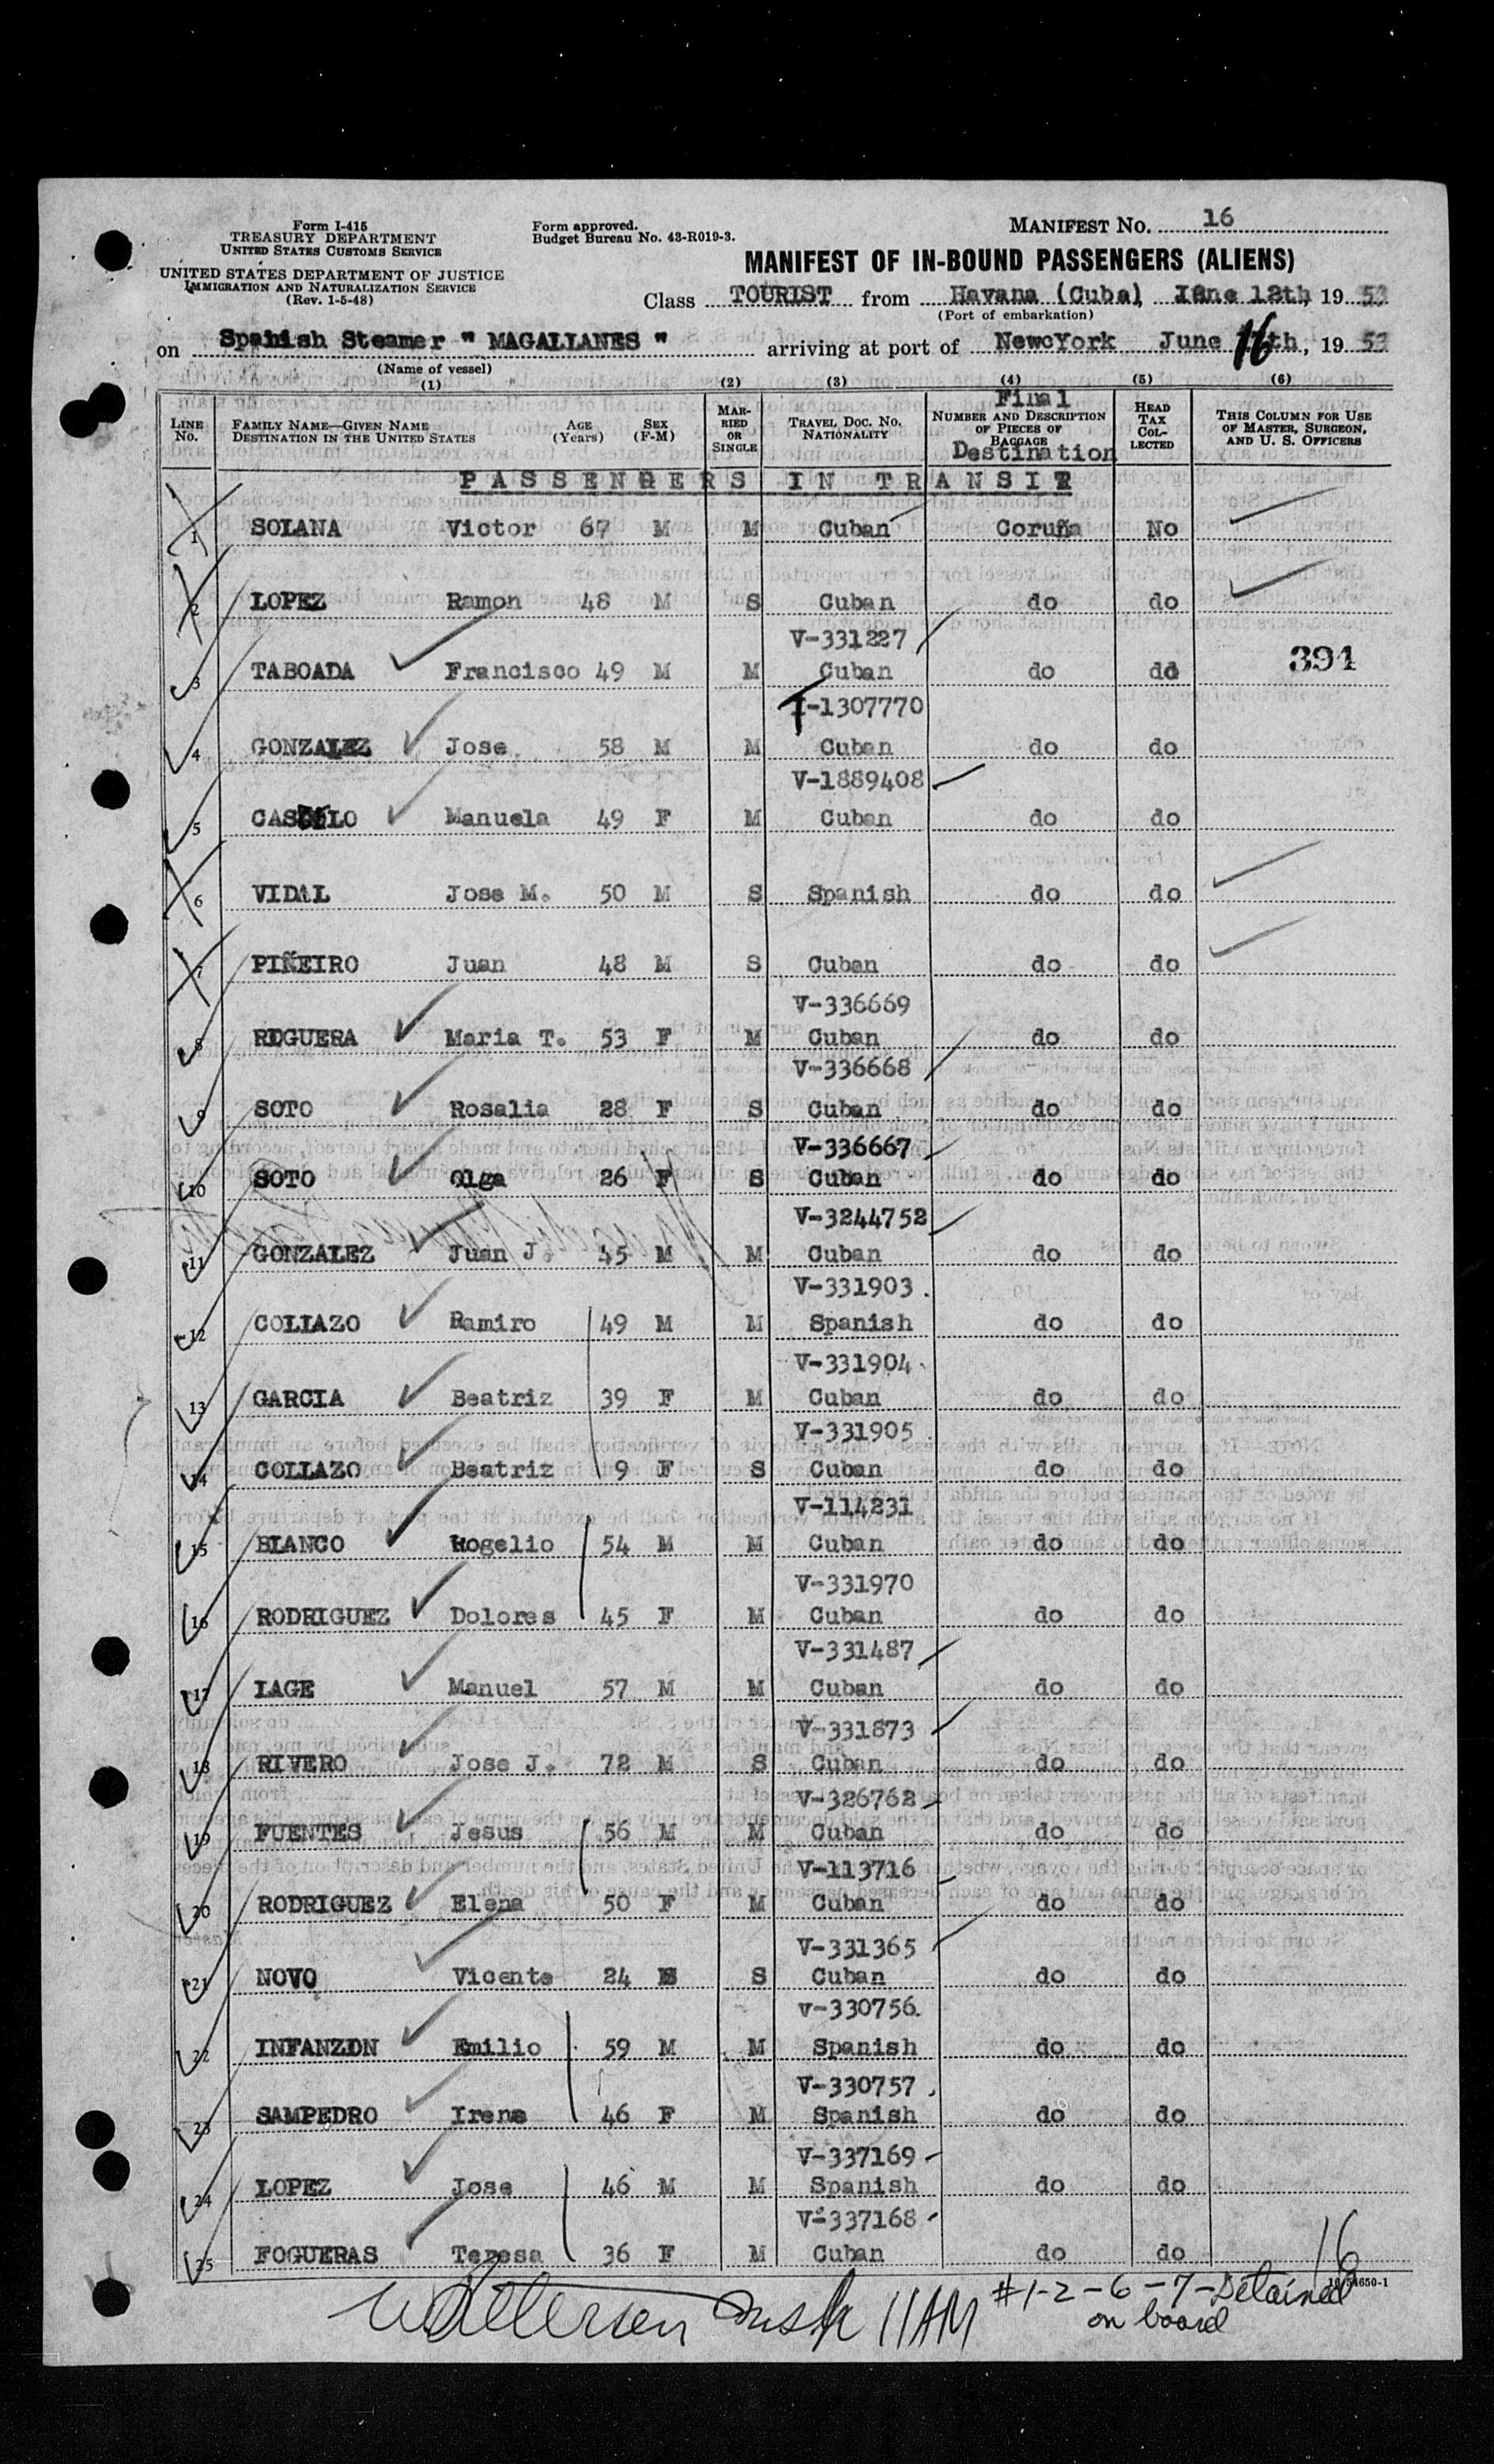 Form I-415
TREASURY DEPARTMENT
UNITED STATES CUSTOMS SERVICE
UNITED STATES DEPARTMENT OF JUSTICE
IMMIGRATION AND NATURALIZATION SERVICE
(Rev. 1-5-48)
Form approved.
Budget Bureau No. 43-R019-3.
MANIFEST NO. 16
MANIFEST OF IN-BOUND PASSENGERS (ALIENS)
Class TOURIST from Havana (Cuba) 12th, 19 53
(Port of embarkation)
on Spanish Steamer " MAGALLANES " arriving at port of NewcYork June 16th, 19 53
(Name of vessel)
(1) (2) (3) (4) (5) (6)
LINE NO. FAMILY NAME—GIVEN NAME DESTINATION IN THE UNITED STATES AGE (Years) SEX (F-M) MARRIED OR SINGLE TRAVEL DOC. NO. NATIONALITY Final NUMBER AND DESCRIPTION OF PIECES OF BAGGAGE Destination HEAD TAX COLLECTED THIS COLUMN FOR USE OF MASTER, SURGEON, AND U. S. OFFICERS
PASSENGERS IN TRANSIT
1 SOLANA Victor 67 M M Cuban Coruña No
2 LOPEZ Ramon 48 M S Cuban do do
V-331227
3 TABOADA Francisco 49 M M Cuban do do 391
T-1307770
4 GONZALEZ Jose 58 M M Cuban do do
V-1889408
5 Manuela 49 F M Cuban do do
6 VIDAL Jose M. 50 M S Spanish do do
7 PIÑEIRO Juan 48 M S Cuban do do
V-336669
8 REGUERA Maria T. 53 F M Cuban do do
V-336668
9 SOTO Rosalia 28 F S Cuban do do
V-336667
10 SOTO Olga 26 F S Cuban do do
V-3244752
11 GONZALEZ Juan J. 45 M M Cuban do do
V-331903
12 COLLAZO Ramiro 49 M M Spanish do do
V-331904
13 GARCIA Beatriz 39 F M Cuban do do
V-331905
14 COLLAZO Beatriz 9 F S Cuban do do
V-114231
15 BLANCO Rogelio 54 M M Cuban do do
V-331970
16 RODRIGUEZ Dolores 45 F M Cuban do do
V-331487
17 LAGE Manuel 57 M M Cuban do do
V-331873
18 RIVERO Jose J. 72 M S Cuban do do
V-326762
19 FUENTES Jesus 56 M M Cuban do do
V-113716
20 RODRIGUEZ Elena 50 F M Cuban do do
V-331365
21 NOVO Vicente 24 S Cuban do do
V-330756
22 INFANZON Emilio 59 M M Spanish do do
V-330757
23 SAMPEDRO Irene 46 F M Spanish do do
V-337169
24 LOPEZ Jose 46 M M Spanish do do
V-337168
25 FOGUERAS Teresa 36 F M Cuban do do
16
11 AM #1-2-6-7-Detained
on board